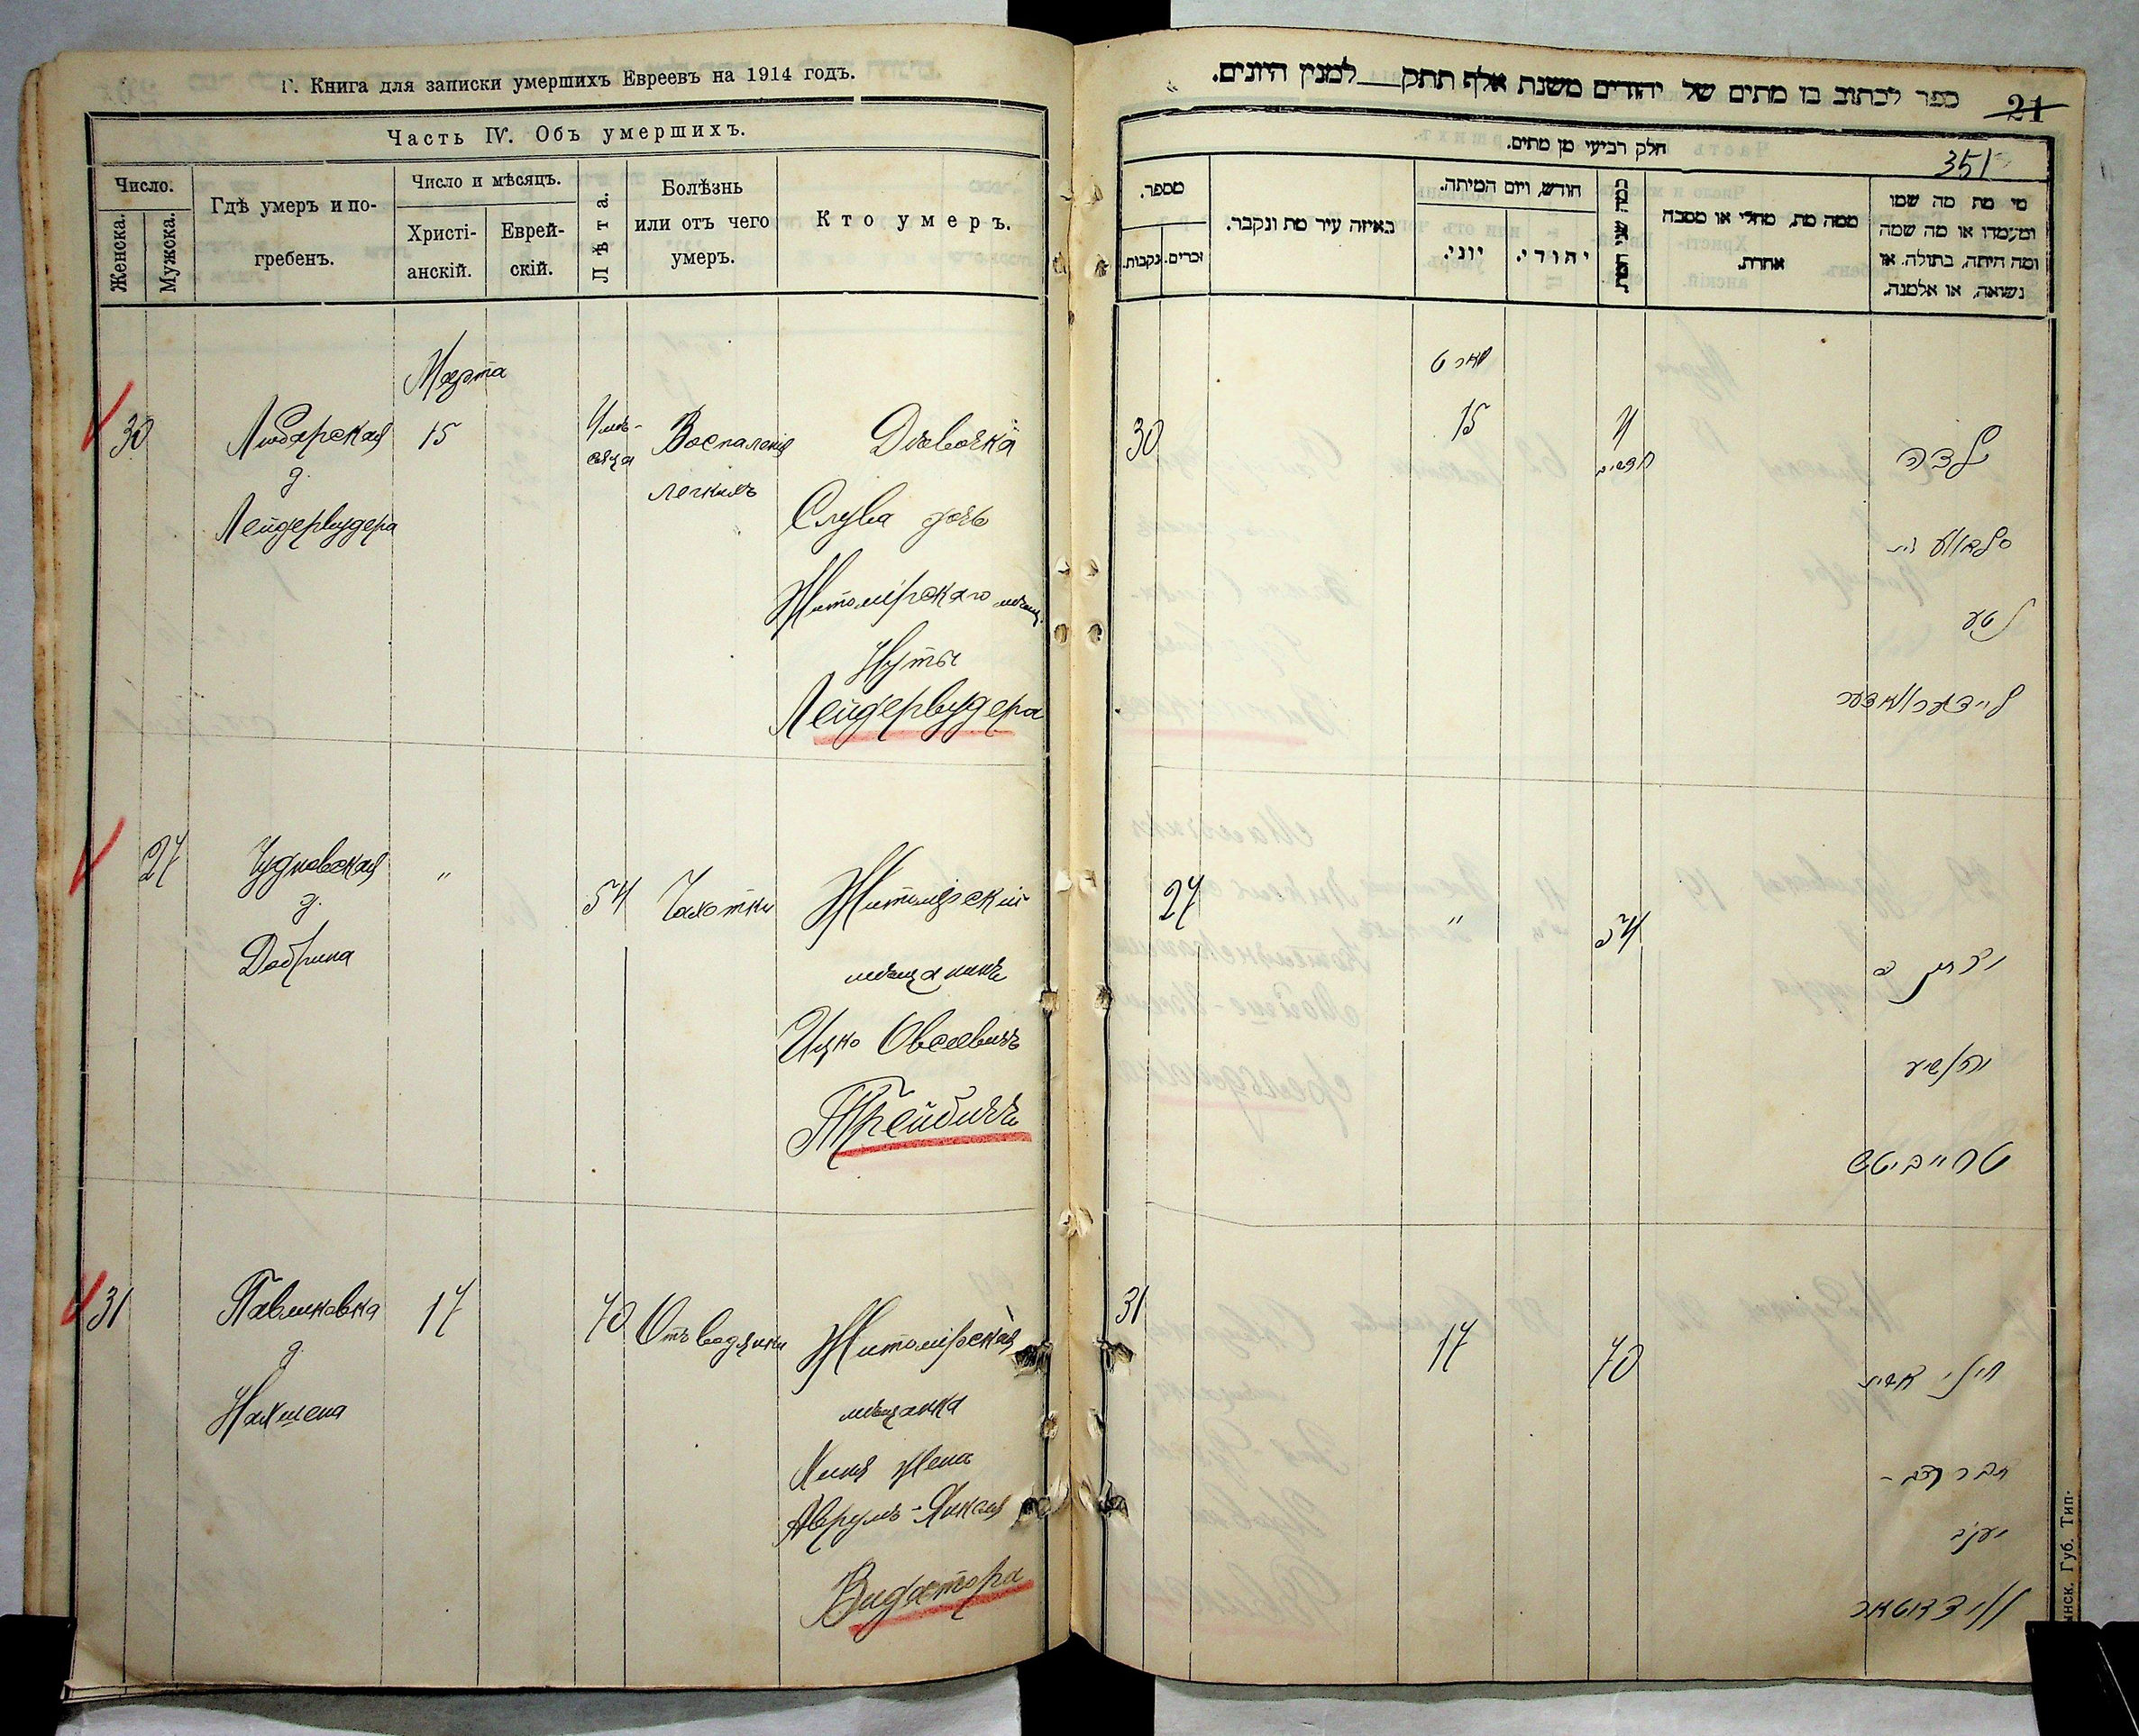 Г. Книга для записки умершихъ Евреевъ на 1914 годъ.
Часть IV. Объ умершихъ.
Число.
Женска.
Мужска.
Гдѣ умеръ и по-
гребенъ.
Число и мѣсяцъ.
Христі-
анскій.
Еврей-
скій.
Лѣта.
Болѣзнь
или отъ чего
умеръ.
Кто умеръ.
Марта
30
Любарская
д.
Лейдервудера
15
4 мѣ-
сяца
Воспаленія
легкихъ
Дѣвочка
Слува дочь
Житомірскаго мѣщ.
Нуты
Лейдервудера
27
Чудновская
д.
Добрина
"
54
Чахотки
Житомірскій
мѣщанинъ
Ицко Овсеевичъ
Трейбичъ
31
Павликовка
д.
17
70
Отъ водянки
Житомірская
мѣщанка
Хиня жена
Аврумъ-Янкеля
Видатора
ספר לכתוב בו מתים של יהודים משנת אלף תתק למנין היונים.
21
351
חלק רביעי מן מתים.
מספר.
נקבות.
זכרים.
באיזה עיר מת ונקבר.
חודש, ויום המיתה.
יוני.
יהודי.
כמה שני המת.
ממה מת, מחלי או מסבה
אחרת.
מי מת מה שמו
ומעמדו או מה שמה
ומה היתה, בתולה, או
נשואה, או אלמנה.
מארט
30
15
4
חדשים
ילדה
נטע
ליידערוואדער
27
"
54
טרייביטש
31
17
70
יעקב
ווידאטאר
инск. Губ. Тип-